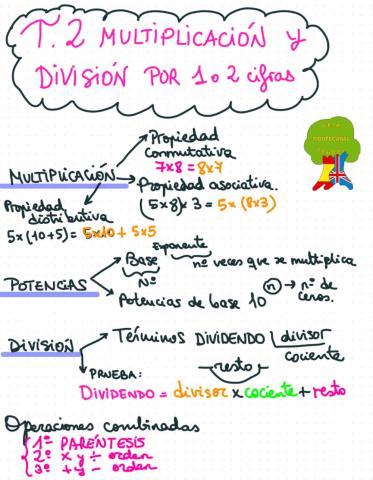 T.2 MULTIPLICACIÓN y
DIVISIÓN POR 1 o 2 cifras
Propiedad
Conmutativa
7x8 = 8x7
MULTIPLICACIÓN
Propiedad asociativa.
(5x8)x3 = 5x(8x3)
Propiedad
distributiva
5x(10+5) = 5x10 + 5x5
Exponente
Base
nº veces que se multiplica
Nº
POTENCIAS
Potencias de base 10 ⁿ → nº de
ceros.
DIVISIÓN
Términos DIVIDENDO divisor
cociente
resto
PRUEBA:
DIVIDENDO = divisor x cociente + resto
Operaciones combinadas
1º PARÉNTESIS
2º x y ÷ orden
3º + y - orden